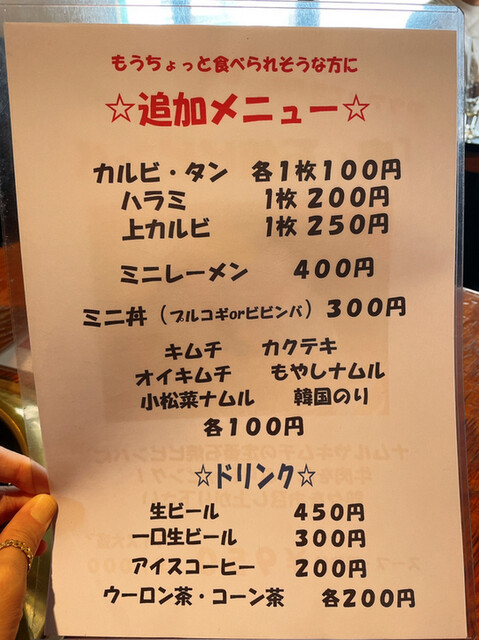 もうちょっと食べられそうな方に
☆追加メニュー☆
カルビ・タン 各1枚100円
ハラミ 1枚200円
上カルビ 1枚250円
ミニレーメン 400円
ミニ丼（プルコギorビビンバ）300円
キムチ カクテキ
オイキムチ もやしナムル
小松菜ナムル 韓国のり
各100円
☆ドリンク☆
生ビール 450円
一口生ビール 300円
アイスコーヒー 200円
ウーロン茶・コーン茶 各200円